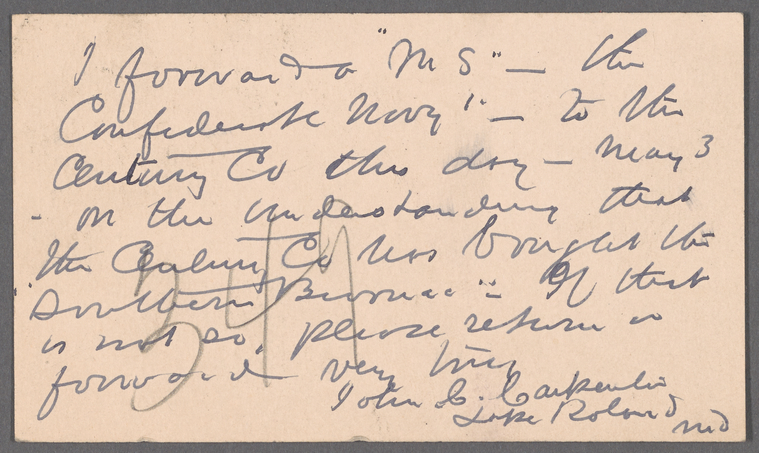 I forward a "MS" — the
Confederate Navy" — to the
Century Co this day — May 3
- on the understanding that
the Century Co has bought the
Southern Bivouac" — If that
is not so, please return or
forward very truly
John C. Carpenter
Lake Roland
Md